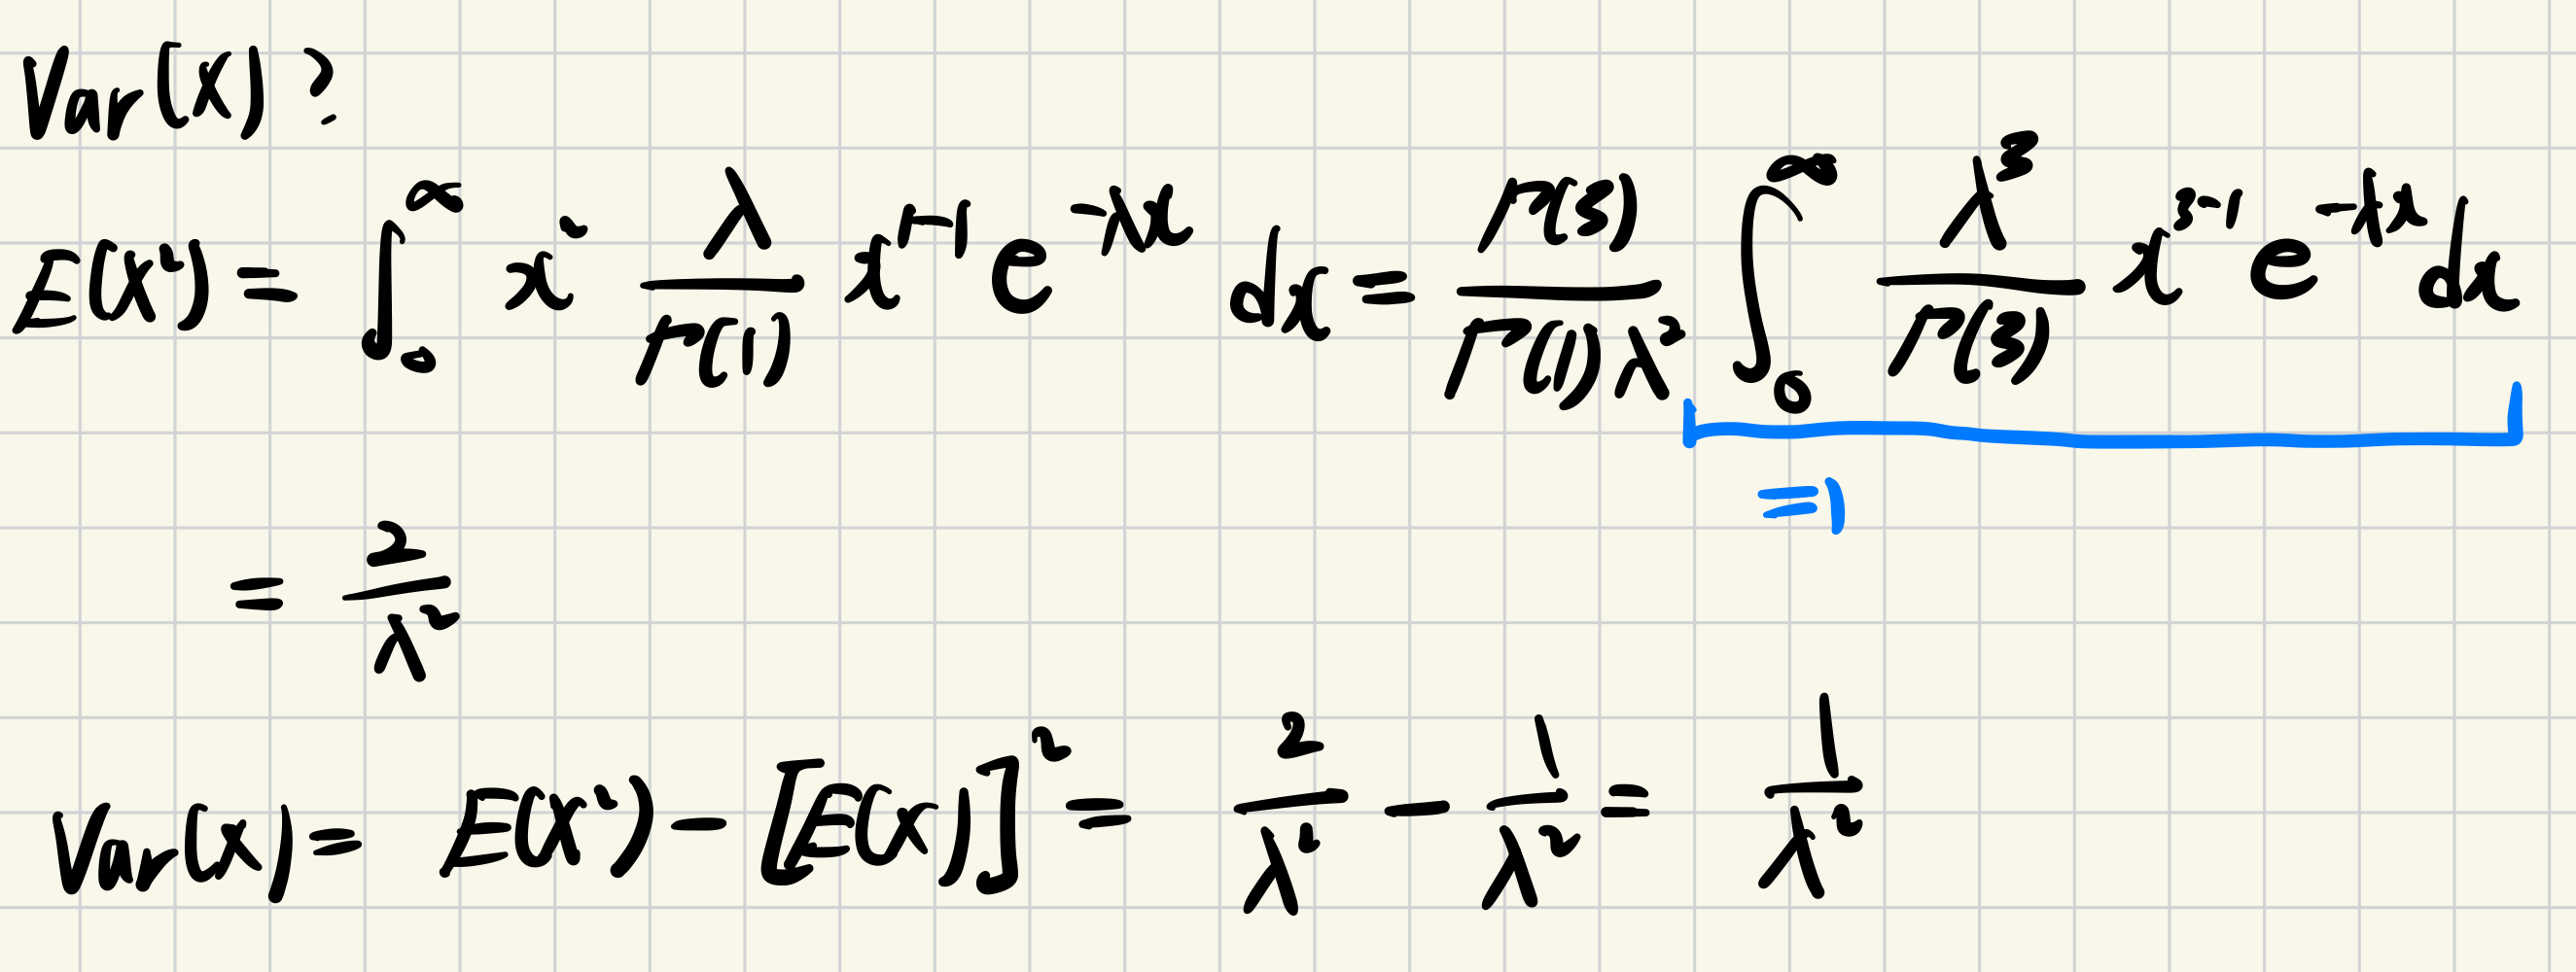 Var(X)?
E(X²) = ∫₀^∞ x² λ/Γ(1) x^(1-1) e^(-λx) dx = Γ(3)/(Γ(1)λ²) ∫₀^∞ λ³/Γ(3) x^(3-1) e^(-λx) dx
=1
= 2/λ²
Var(X) = E(X²) - [E(X)]² = 2/λ² - 1/λ² = 1/λ²